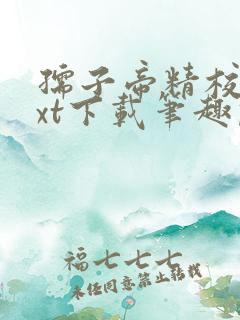 孺子帝精校
xt下载笔趣
福七七七
未经同意禁止转载